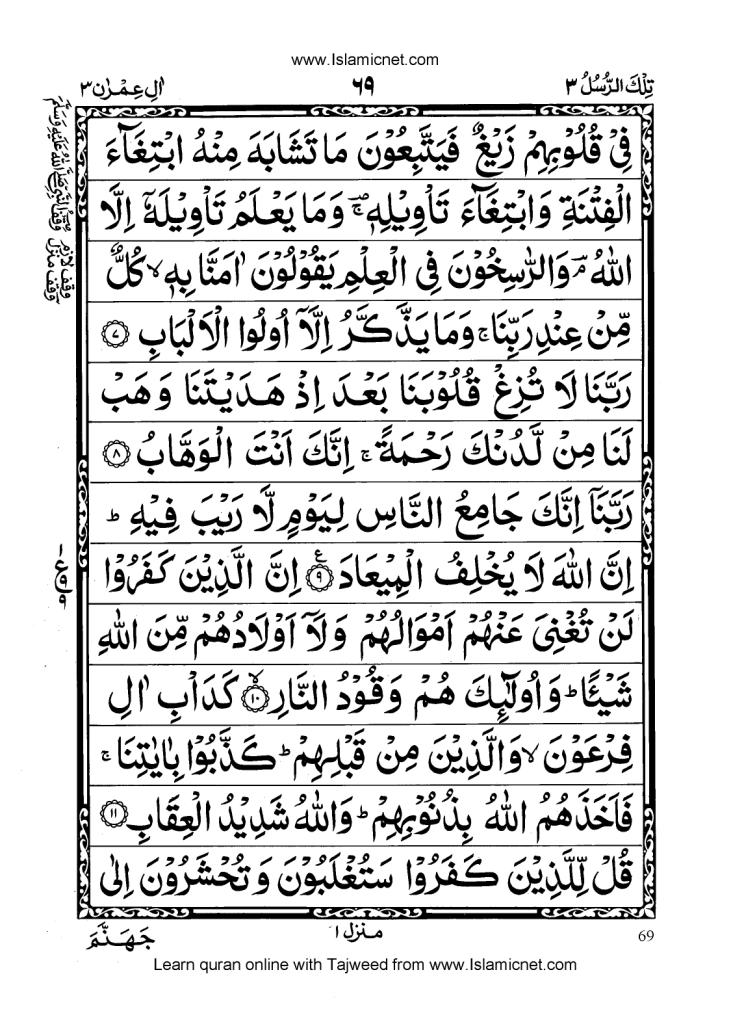 www.Islamicnet.com
تِلْكَ الرُّسُلُ ٣
٦٩
اٰلِ عِمْرٰن ٣
فِيْ قُلُوْبِهِمْ زَيْغٌ فَيَتَّبِعُوْنَ مَا تَشَابَهَ مِنْهُ ابْتِغَآءَ
الْفِتْنَةِ وَابْتِغَآءَ تَاْوِيْلِهٖ ۚ وَمَا يَعْلَمُ تَاْوِيْلَهٗٓ اِلَّا
اللّٰهُ ۘ وَالرّٰسِخُوْنَ فِي الْعِلْمِ يَقُوْلُوْنَ اٰمَنَّا بِهٖ ۙ كُلٌّ
مِّنْ عِنْدِ رَبِّنَا ۚ وَمَا يَذَّكَّرُ اِلَّآ اُولُوا الْاَلْبَابِ ۝٧
رَبَّنَا لَا تُزِغْ قُلُوْبَنَا بَعْدَ اِذْ هَدَيْتَنَا وَهَبْ
لَنَا مِنْ لَّدُنْكَ رَحْمَةً ۚ اِنَّكَ اَنْتَ الْوَهَّابُ ۝٨
رَبَّنَآ اِنَّكَ جَامِعُ النَّاسِ لِيَوْمٍ لَّا رَيْبَ فِيْهِ ؕ
اِنَّ اللّٰهَ لَا يُخْلِفُ الْمِيْعَادَ ۝٩ ع اِنَّ الَّذِيْنَ كَفَرُوْا
لَنْ تُغْنِيَ عَنْهُمْ اَمْوَالُهُمْ وَلَآ اَوْلَادُهُمْ مِّنَ اللّٰهِ
شَيْـًٔا ؕ وَاُولٰٓئِكَ هُمْ وَقُوْدُ النَّارِ ۝١٠ۙ كَدَاْبِ اٰلِ
فِرْعَوْنَ ۙ وَالَّذِيْنَ مِنْ قَبْلِهِمْ ؕ كَذَّبُوْا بِاٰيٰتِنَا ۚ
فَاَخَذَهُمُ اللّٰهُ بِذُنُوْبِهِمْ ؕ وَاللّٰهُ شَدِيْدُ الْعِقَابِ ۝١١
قُلْ لِّلَّذِيْنَ كَفَرُوْا سَتُغْلَبُوْنَ وَتُحْشَرُوْنَ اِلٰى
وقف النبي صلى الله عليه وسلم
وقف لازم
وقف منزل
منزل ١
جَهَنَّمَ
69
Learn quran online with Tajweed from www.Islamicnet.com